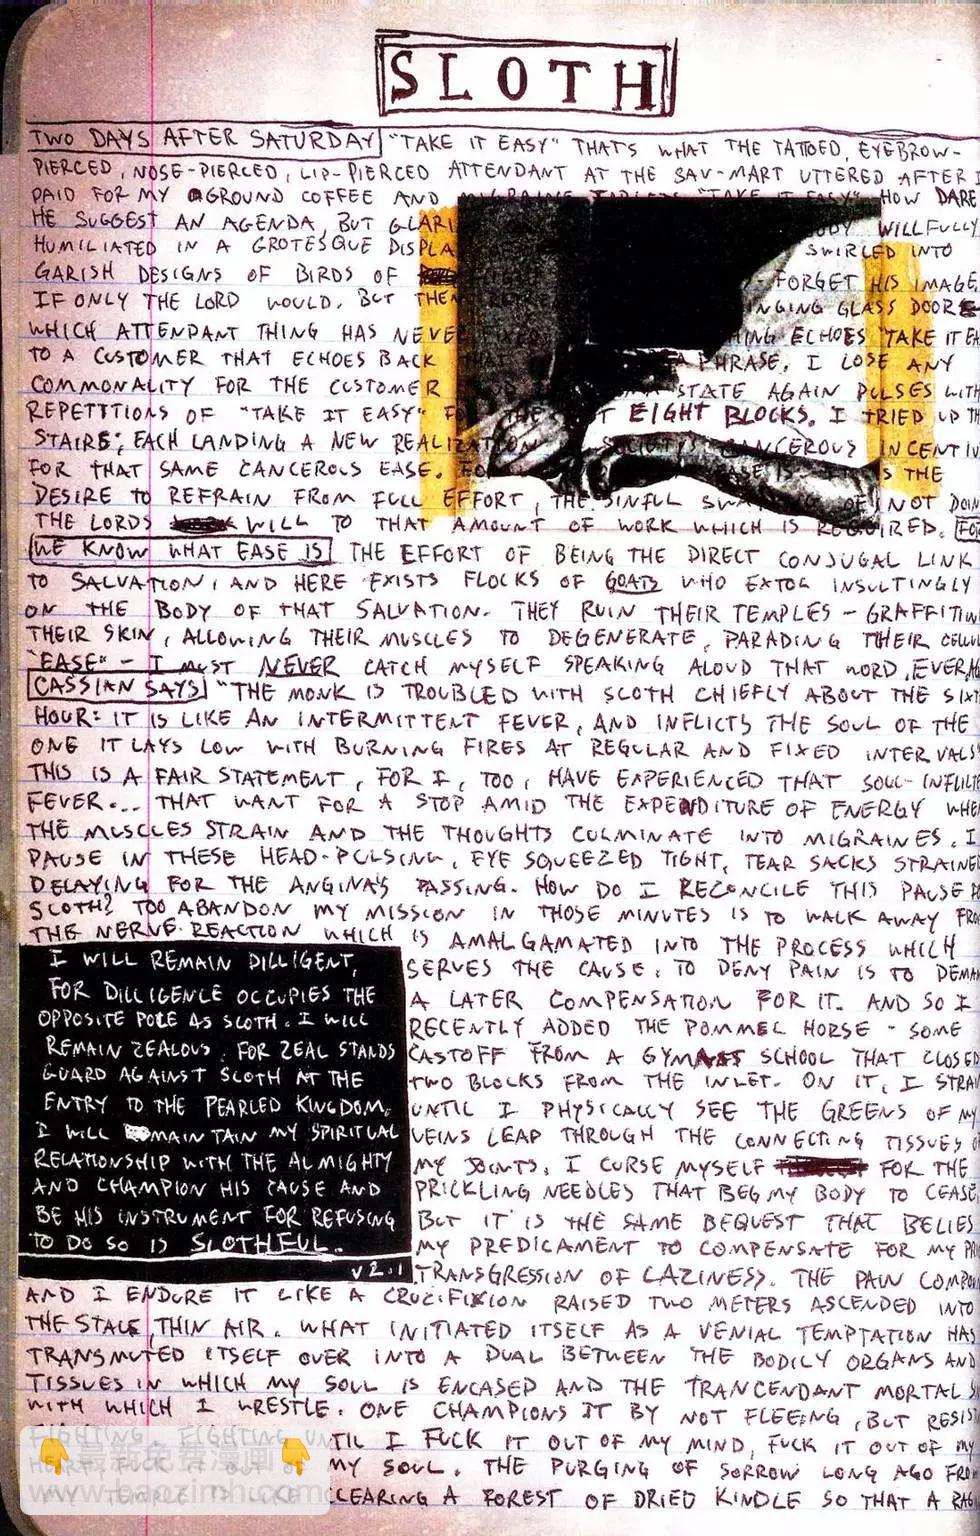 SLOTH
TWO DAYS AFTER SATURDAY "TAKE IT EASY" THATS WHAT THE TATTOED, EYEBROW-
PIERCED, NOSE-PIERCED, LIP-PIERCED ATTENDANT AT THE SAV-MART UTTERED AFTER I
PAID FOR MY GROUND COFFEE AND MIGRAINE TABLETS "TAKE IT EASY" HOW DARE
HE SUGGEST AN AGENDA, BUT GLARI BODY WILLFULLY
HUMILIATED IN A GROTESQUE DISPLA SWIRLED INTO
GARISH DESIGNS OF BIRDS OF FORGET HIS IMAGE,
IF ONLY THE LORD WOULD. BUT THEN NGING GLASS DOOR
WHICH ATTENDANT THING HAS NEVE HING ECHOES "TAKE IT EA
TO A CUSTOMER THAT ECHOES BACK A PHRASE. I LOSE ANY
COMMONALITY FOR THE CUSTOMER STATE AGAIN PULSES WITH
REPETITIONS OF "TAKE IT EASY" FO THE T EIGHT BLOCKS. I TRIED UP TH
STAIRS; EACH LANDING A NEW REALIZATION SOCIETYS CANCEROUS INCENTIV
FOR THAT SAME CANCEROUS EASE. FO EASE IS S THE
DESIRE TO REFRAIN FROM FULL EFFORT, THE SINFUL SWA OF NOT DOIN
THE LORDS WILL TO THAT AMOUNT OF WORK WHICH IS REQUIRED. FOR
WE KNOW WHAT EASE IS THE EFFORT OF BEING THE DIRECT CONJUGAL LINK
TO SALVATION, AND HERE EXISTS FLOCKS OF GOATS WHO EXTOL INSULTINGLY
ON THE BODY OF THAT SALVATION. THEY RUIN THEIR TEMPLES - GRAFFITIIN
THEIR SKIN, ALLOWING THEIR MUSCLES TO DEGENERATE, PARADING THEIR CELLU
"EASE" - I MUST NEVER CATCH MYSELF SPEAKING ALOUD THAT WORD, EVER AG
CASSIAN SAYS "THE MONK IS TROUBLED WITH SLOTH CHIEFLY ABOUT THE SIXT
HOUR: IT IS LIKE AN INTERMITTENT FEVER, AND INFLICTS THE SOUL OF THE
ONE IT LAYS LOW WITH BURNING FIRES AT REGULAR AND FIXED INTERVALS"
THIS IS A FAIR STATEMENT, FOR I, TOO, HAVE EXPERIENCED THAT SOUL-INFLIC
FEVER... THAT WANT FOR A STOP AMID THE EXPENDITURE OF ENERGY WHE
THE MUSCLES STRAIN AND THE THOUGHTS CULMINATE INTO MIGRAINES. I
PAUSE IN THESE HEAD-PULSING, EYE SQUEEZED TIGHT, TEAR SACKS STRAINE
DELAYING FOR THE ANGINA'S PASSING. HOW DO I RECONCILE THIS PAUSE
SLOTH? TOO ABANDON MY MISSION IN THOSE MINUTES IS TO WALK AWAY FRO
THE NERVE-REACTION WHICH IS AMALGAMATED INTO THE PROCESS WHICH
SERVES THE CAUSE. TO DENY PAIN IS TO DEMA
A LATER COMPENSATION FOR IT. AND SO I
RECENTLY ADDED THE POMMEL HORSE - SOME
CASTOFF FROM A GYMNAS SCHOOL THAT CLOSED
TWO BLOCKS FROM THE INLET. ON IT, I STRAI
UNTIL I PHYSICALLY SEE THE GREENS OF MY
VEINS LEAP THROUGH THE CONNECTING TISSUES O
MY JOINTS, I CURSE MYSELF FOR THE
PRICKLING NEEDLES THAT BEG MY BODY TO CEASE
BUT IT IS THE SAME BEQUEST THAT BELIES
MY PREDICAMENT TO COMPENSATE FOR MY
TRANSGRESSION OF LAZINESS. THE PAIN COMPO
I WILL REMAIN DILLIGENT,
FOR DILLIGENCE OCCUPIES THE
OPPOSITE POLE AS SLOTH. I WILL
REMAIN ZEALOUS. FOR ZEAL STANDS
GUARD AGAINST SLOTH AT THE
ENTRY TO THE PEARLED KINGDOM,
I WILL MAINTAIN MY SPIRITUAL
RELATIONSHIP WITH THE ALMIGHTY
AND CHAMPION HIS CAUSE AND
BE HIS INSTRUMENT FOR REFUSING
TO DO SO IS SLOTHFUL.
v2.1
AND I ENDURE IT LIKE A CRUCIFIXION RAISED TWO METERS ASCENDED INTO
THE STALE, THIN AIR. WHAT INITIATED ITSELF AS A VENIAL TEMPTATION HAS
TRANSMUTED ITSELF OVER INTO A DUAL BETWEEN THE BODILY ORGANS AND
TISSUES IN WHICH MY SOUL IS ENCASED AND THE TRANCENDANT MORTAL S
WITH WHICH I WRESTLE. ONE CHAMPIONS IT BY NOT FLEEING, BUT RESIST
FIGHTING, FIGHTING UNTIL I FUCK IT OUT OF MY MIND, FUCK IT OUT OF MY
MY SOUL. THE PURGING OF SORROW LONG AGO FRO
MY TEMPLE IS LIKE CLEARING A FOREST OF DRIED KINDLE SO THAT A RAG
最新免费漫画
www.baozimh.com